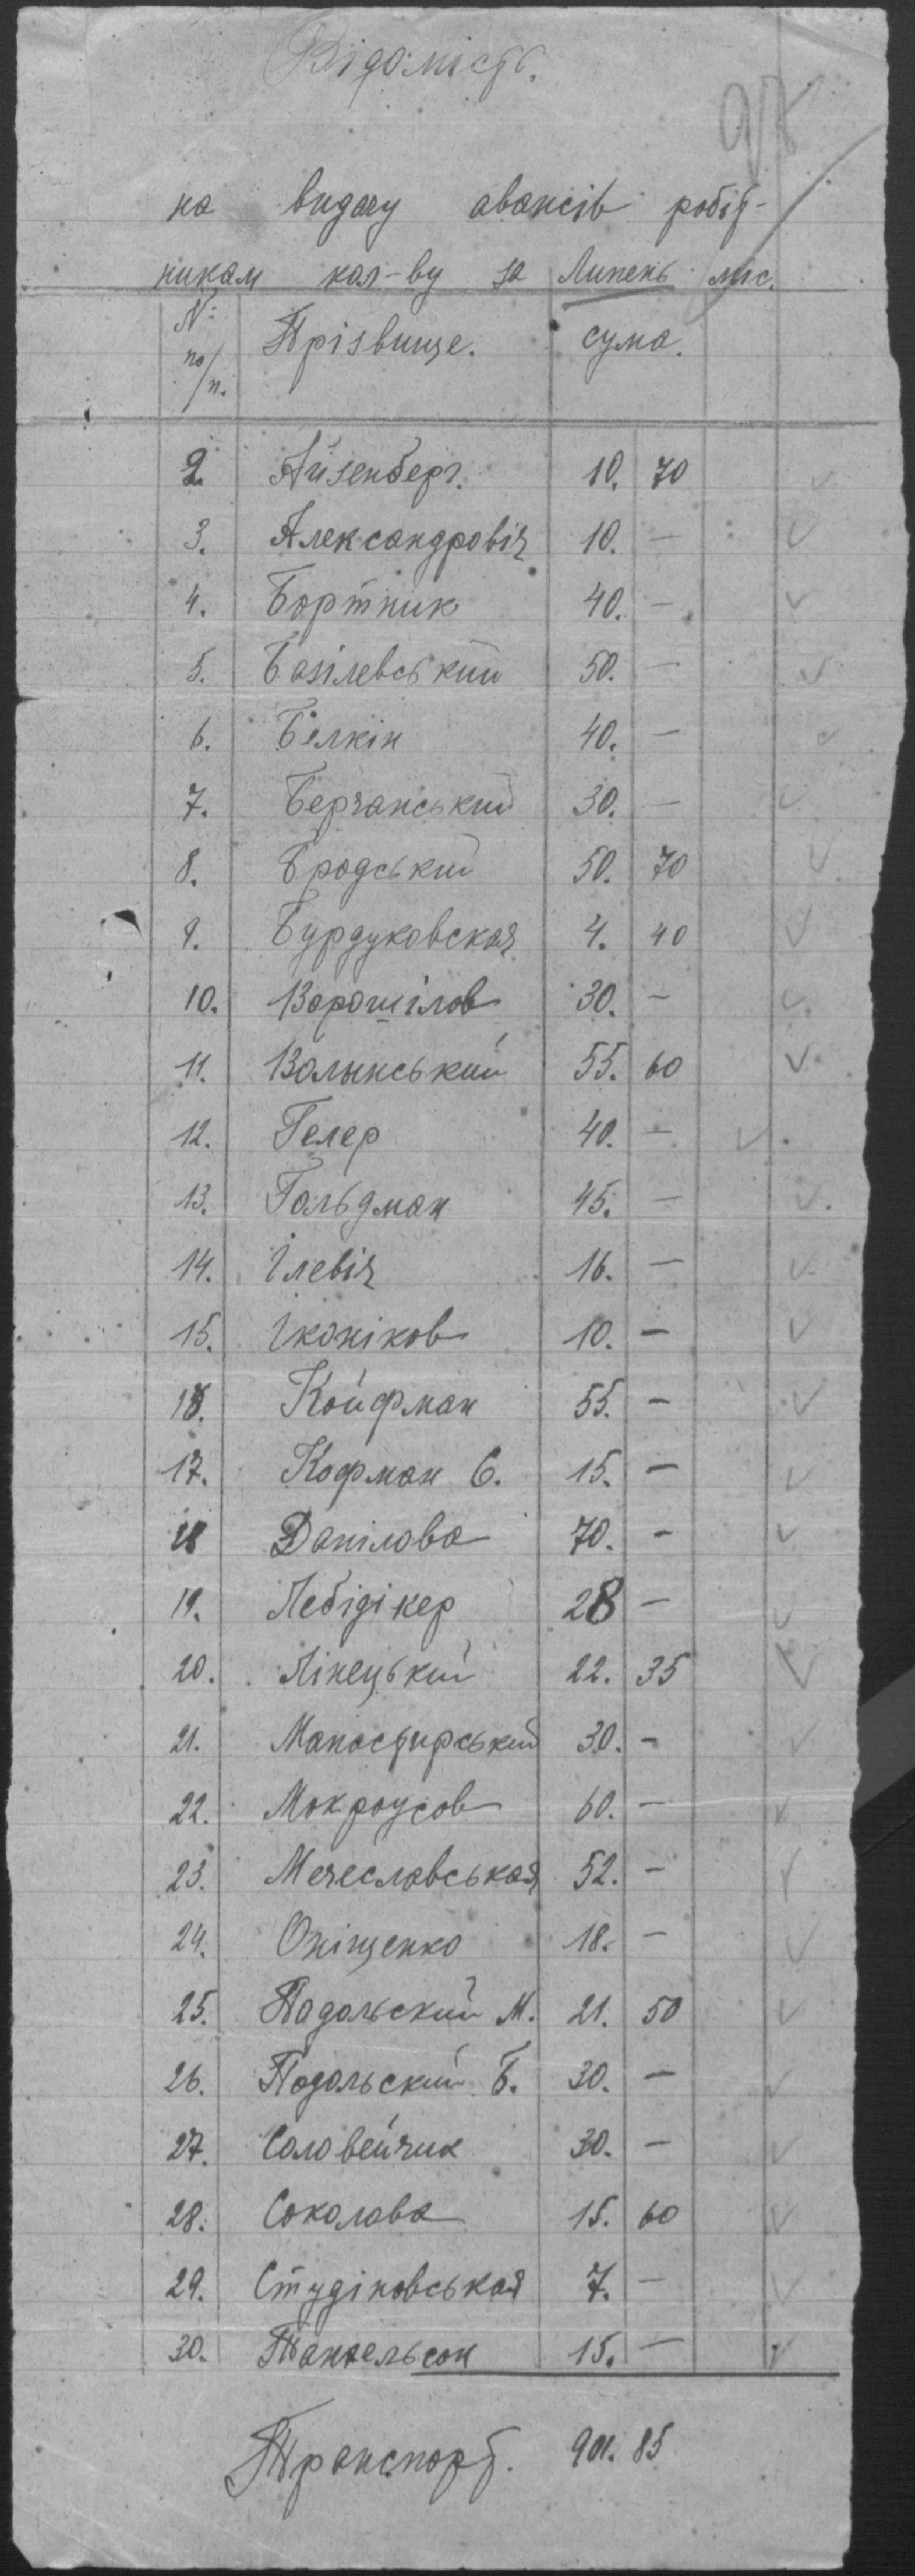 Відомість.
на видачу авансів робіт-
никам кол-ву за Липень міс.
№ по/п. Прізвище. сума.
2 Айзенберг. 10. 70
3. Александровіч 10. —
4. Бортник 40. —
5. Базілевський 50. —
6. Бєлкін 40. —
7. Берчанський 30. —
8. Бродський 50. 70
9. Бурдуковская 4. 40
10. Ворошілов 30. —
11. Волынський 55. 60
12. Гелер 40. —
13. Гольдман 45. —
14. Ілевіч 16. —
15. Іконіков 10. —
Койфман 55. —
17. Кофман С. 15. —
18 Данілова 70. —
19. Лебідікер 28 —
20. Лінецький 22. 35
21. Манастирський 30. —
22. Мокроусов 60. —
23. Мечеславськая 52. —
24. Оніщенко 18. —
25. Подольский М. 21. 50
26. Подольский Б. 30. —
27. Соловейчик 30. —
28. Соколова 15. 60
29. Студіновськая 7. —
30. 15. —
Транспорт. 901. 85